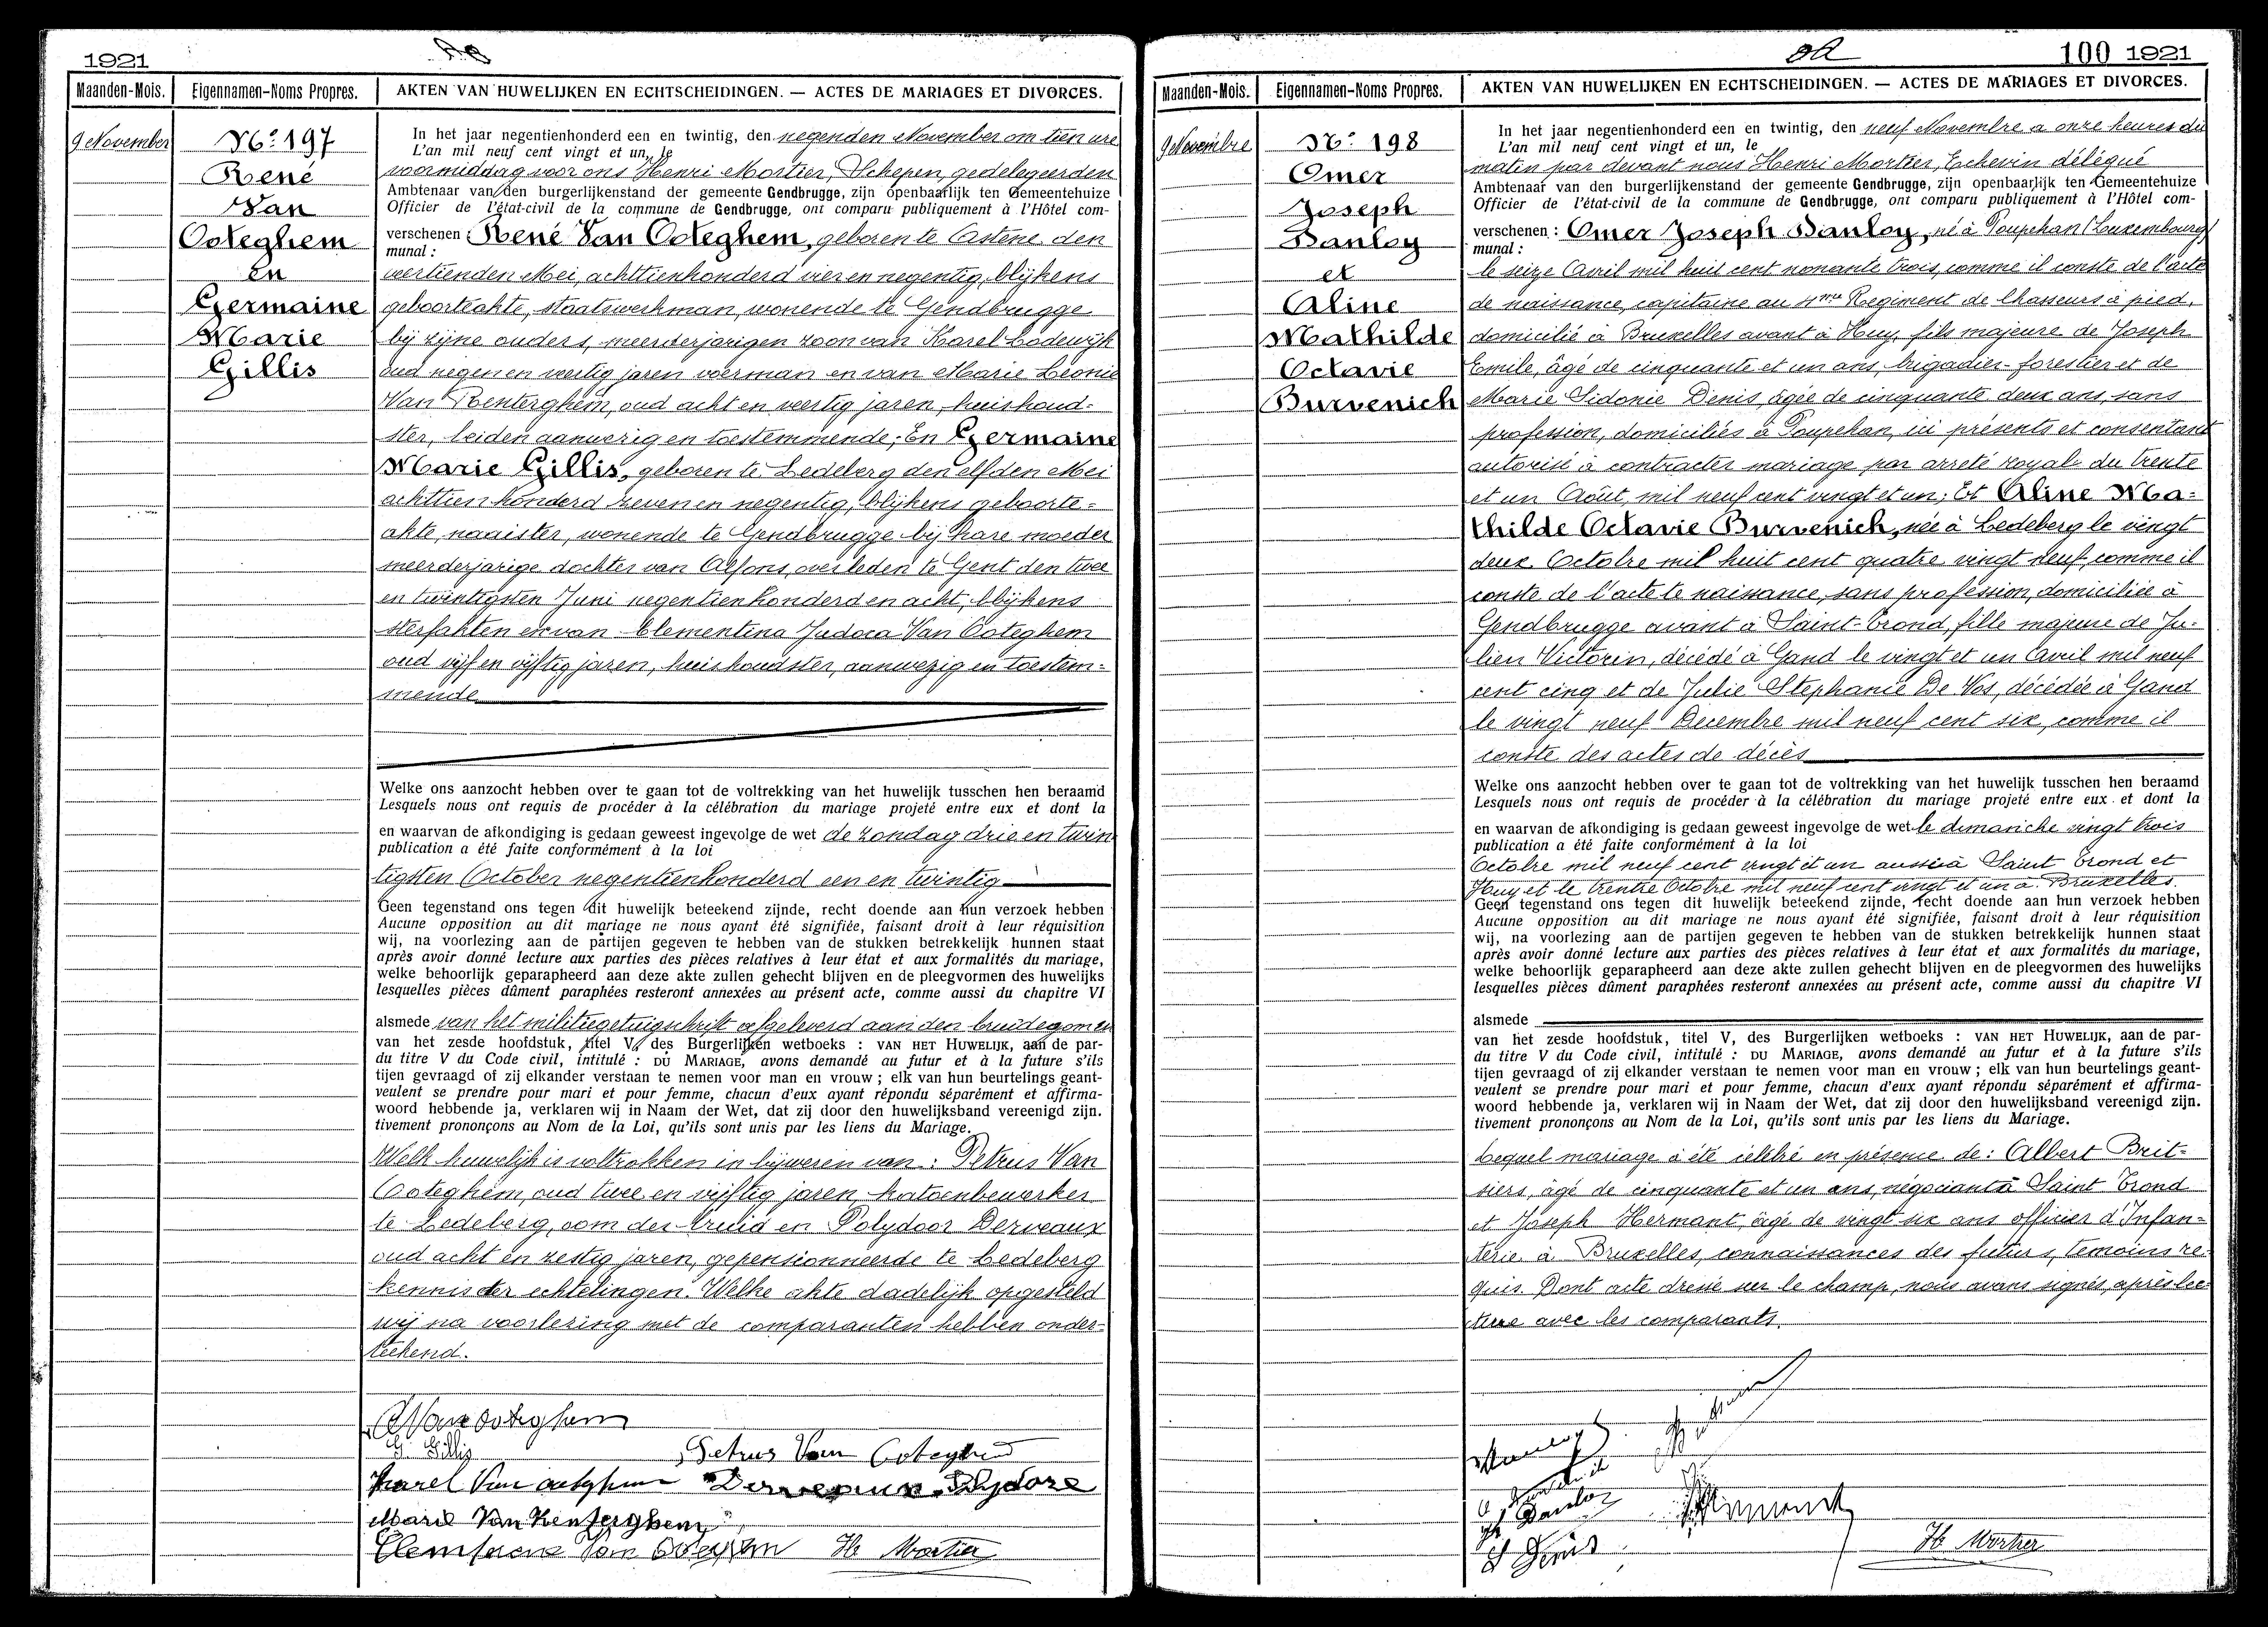 1921
Maanden-Mois.
Eigennamen-Noms Propres.
AKTEN VAN HUWELIJKEN EN ECHTSCHEIDINGEN. — ACTES DE MARIAGES ET DIVORCES.
9 November
No: 197
René
Van
Ooteghem
en
Germaine
Marie
Gillis
In het jaar negentienhonderd een en twintig, den negenden November om tien ure
L'an mil neuf cent vingt et un, le
voormiddag voor ons Henri Mortier, Schepen, gedelegeerden
Ambtenaar van den burgerlijkenstand der gemeente Gendbrugge, zijn openbaarlijk ten Gemeentehuize
Officier de l'état-civil de la commune de Gendbrugge, ont comparu publiquement à l'Hôtel com-
verschenen : René Van Ooteghem, geboren te Astene den
munal :
veertienden Mei, achttienhonderd vier en negentig, blijkens
geboorteakte, staatswerkman, wonende te Gendbrugge
bij zijne ouders, meerderjarigen zoon van Karel Lodewijk
oud negen en veertig jaren voerman en van Marie Léonie
Van Renterghem, oud acht en veertig jaren, huishoud-
ster, beiden aanwezig en toestemmende; En Germaine
Marie Gillis, geboren te Ledeberg den elfden Mei
achttienhonderd zeven en negentig, blijkens geboorte-
akte, naaister, wonende te Gendbrugge bij hare moeder
meerderjarige dochter van Alfons, overleden te Gent den twee
en twintigsten Juni negentienhonderd en acht, blijkens
sterfakten en van Clementina Judoca Van Ooteghem
oud vijf en vijftig jaren, huishoudster, aanwezig en toestem-
mende
Welke ons aanzocht hebben over te gaan tot de voltrekking van het huwelijk tusschen hen beraamd
Lesquels nous ont requis de procéder à la célébration du mariage projeté entre eux et dont la
en waarvan de afkondiging is gedaan geweest ingevolge de wet de zondag drie en twin
publication a été faite conformément à la loi
tigsten October negentienhonderd een en twintig
Geen tegenstand ons tegen dit huwelijk beteekend zijnde, recht doende aan hun verzoek hebben
Aucune opposition au dit mariage ne nous ayant été signifiée, faisant droit à leur réquisition
wij, na voorlezing aan de partijen gegeven te hebben van de stukken betrekkelijk hunnen staat
après avoir donné lecture aux parties des pièces relatives à leur état et aux formalités du mariage,
welke behoorlijk geparapheerd aan deze akte zullen gehecht blijven en de pleegvormen des huwelijks
lesquelles pièces dûment paraphées resteront annexées au présent acte, comme aussi du chapitre VI
alsmede van het militiegetuigschrift afgeleverd aan den bruidegom en
van het zesde hoofdstuk, titel V, des Burgerlijken wetboeks : VAN HET HUWELIJK, aan de par-
du titre V du Code civil, intitulé : DU MARIAGE, avons demandé au futur et à la future s'ils
tijen gevraagd of zij elkander verstaan te nemen voor man en vrouw ; elk van hun beurtelings geant-
veulent se prendre pour mari et pour femme, chacun d'eux ayant répondu séparément et affirma-
woord hebbende ja, verklaren wij in Naam der Wet, dat zij door den huwelijksband vereenigd zijn.
tivement prononçons au Nom de la Loi, qu'ils sont unis par les liens du Mariage.
Welk huwelijk is voltrokken in bijwezen van : Petrus Van
Ooteghem, oud twee en vijftig jaren, katoenbewerker
te Ledeberg, oom der bruid en Polydoor Derveaux
oud acht en zestig jaren, gepensionneerde te Ledeberg
kennis der echtelingen. Welke akte dadelijk opgesteld
wij na voorlezing met de comparanten hebben onder-
teekend.
R Van Ooteghem
G. Gillis
Petrus Van Ooteghem
Karel Van Ooteghem
Derveaux Polydore
Marie Van Renterghem
Clemence Van Ooteghem
H. Mortier
100 1921
Maanden-Mois.
Eigennamen-Noms Propres.
AKTEN VAN HUWELIJKEN EN ECHTSCHEIDINGEN. — ACTES DE MARIAGES ET DIVORCES.
9 Novembre
No: 198
Omer
Joseph
Danloy
et
Aline
Mathilde
Octavie
Burvenich
In het jaar negentienhonderd een en twintig, den neuf Novembre a onze heures du
L'an mil neuf cent vingt et un, le
matin par devant nous Henri Mortier, Echevin délégué
Ambtenaar van den burgerlijkenstand der gemeente Gendbrugge, zijn openbaarlijk ten Gemeentehuize
Officier de l'état-civil de la commune de Gendbrugge, ont comparu publiquement à l'Hôtel com-
verschenen : Omer Joseph Danloy, né à Poupehan (Luxembourg)
munal :
le seize Avril mil huit cent nonante trois, comme il conste de l'acte
de naissance, capitaine au 4me Regiment de Chasseurs à pied,
domicilié à Bruxelles avant à Huy, fils majeure de Joseph
Emile, âgé de cinquante et un ans, brigadier-forestier et de
Marie Sidonie Denis, âgée de cinquante deux ans, sans
profession, domiciliés à Poupehan, ici présents et consentant
autorisé à contracter mariage par arreté royal du trente
et un Août, mil neuf cent vingt et un; Et Aline Ma-
thilde Octavie Burvenich, née à Ledeberg le vingt
deux Octobre mil huit cent quatre vingt neuf, comme il
conste de l'acte te naissance, sans profession, domiciliée à
Gendbrugge avant à Saint-Trond, fille majeure de Ju-
lien Victorin, décédé à Gand le vingt et un Avril mil neuf
cent cinq et de Julie Stephanie De Vos, décédée à Gand
le vingt neuf Decembre mil neuf cent six, comme il
conste des actes de décès
Welke ons aanzocht hebben over te gaan tot de voltrekking van het huwelijk tusschen hen beraamd
Lesquels nous ont requis de procéder à la célébration du mariage projeté entre eux et dont la
en waarvan de afkondiging is gedaan geweest ingevolge de wet le dimanche vingt trois
publication a été faite conformément à la loi
Octobre mil neuf cent vingt et un aussi à Saint Trond et
Huy et le trentre Octobre mil neuf cent vingt et un à Bruxelles.
Geen tegenstand ons tegen dit huwelijk beteekend zijnde, recht doende aan hun verzoek hebben
Aucune opposition au dit mariage ne nous ayant été signifiée, faisant droit à leur réquisition
wij, na voorlezing aan de partijen gegeven te hebben van de stukken betrekkelijk hunnen staat
après avoir donné lecture aux parties des pièces relatives à leur état et aux formalités du mariage,
welke behoorlijk geparapheerd aan deze akte zullen gehecht blijven en de pleegvormen des huwelijks
lesquelles pièces dûment paraphées resteront annexées au présent acte, comme aussi du chapitre VI
alsmede
van het zesde hoofdstuk, titel V, des Burgerlijken wetboeks : VAN HET HUWELIJK, aan de par-
du titre V du Code civil, intitulé : DU MARIAGE, avons demandé au futur et à la future s'ils
tijen gevraagd of zij elkander verstaan te nemen voor man en vrouw ; elk van hun beurtelings geant-
veulent se prendre pour mari et pour femme, chacun d'eux ayant répondu séparément et affirma-
woord hebbende ja, verklaren wij in Naam der Wet, dat zij door den huwelijksband vereenigd zijn.
tivement prononçons au Nom de la Loi, qu'ils sont unis par les liens du Mariage.
Lequel mariage à été célébré en présence de : Albert Brit-
siers, âgé de cinquante et un ans, négociant à Saint Trond
et Joseph Hermant, âgé de vingt six ans officier d'Infan-
terie à Bruxelles, connaissances des futurs, temoins re-
quis. Dont acte dressé sur le champ, nous avons signés, après lec-
ture avec les comparants.
Danloy
A Burvenich
Danloy
S Denis
Hermant
H. Mortier